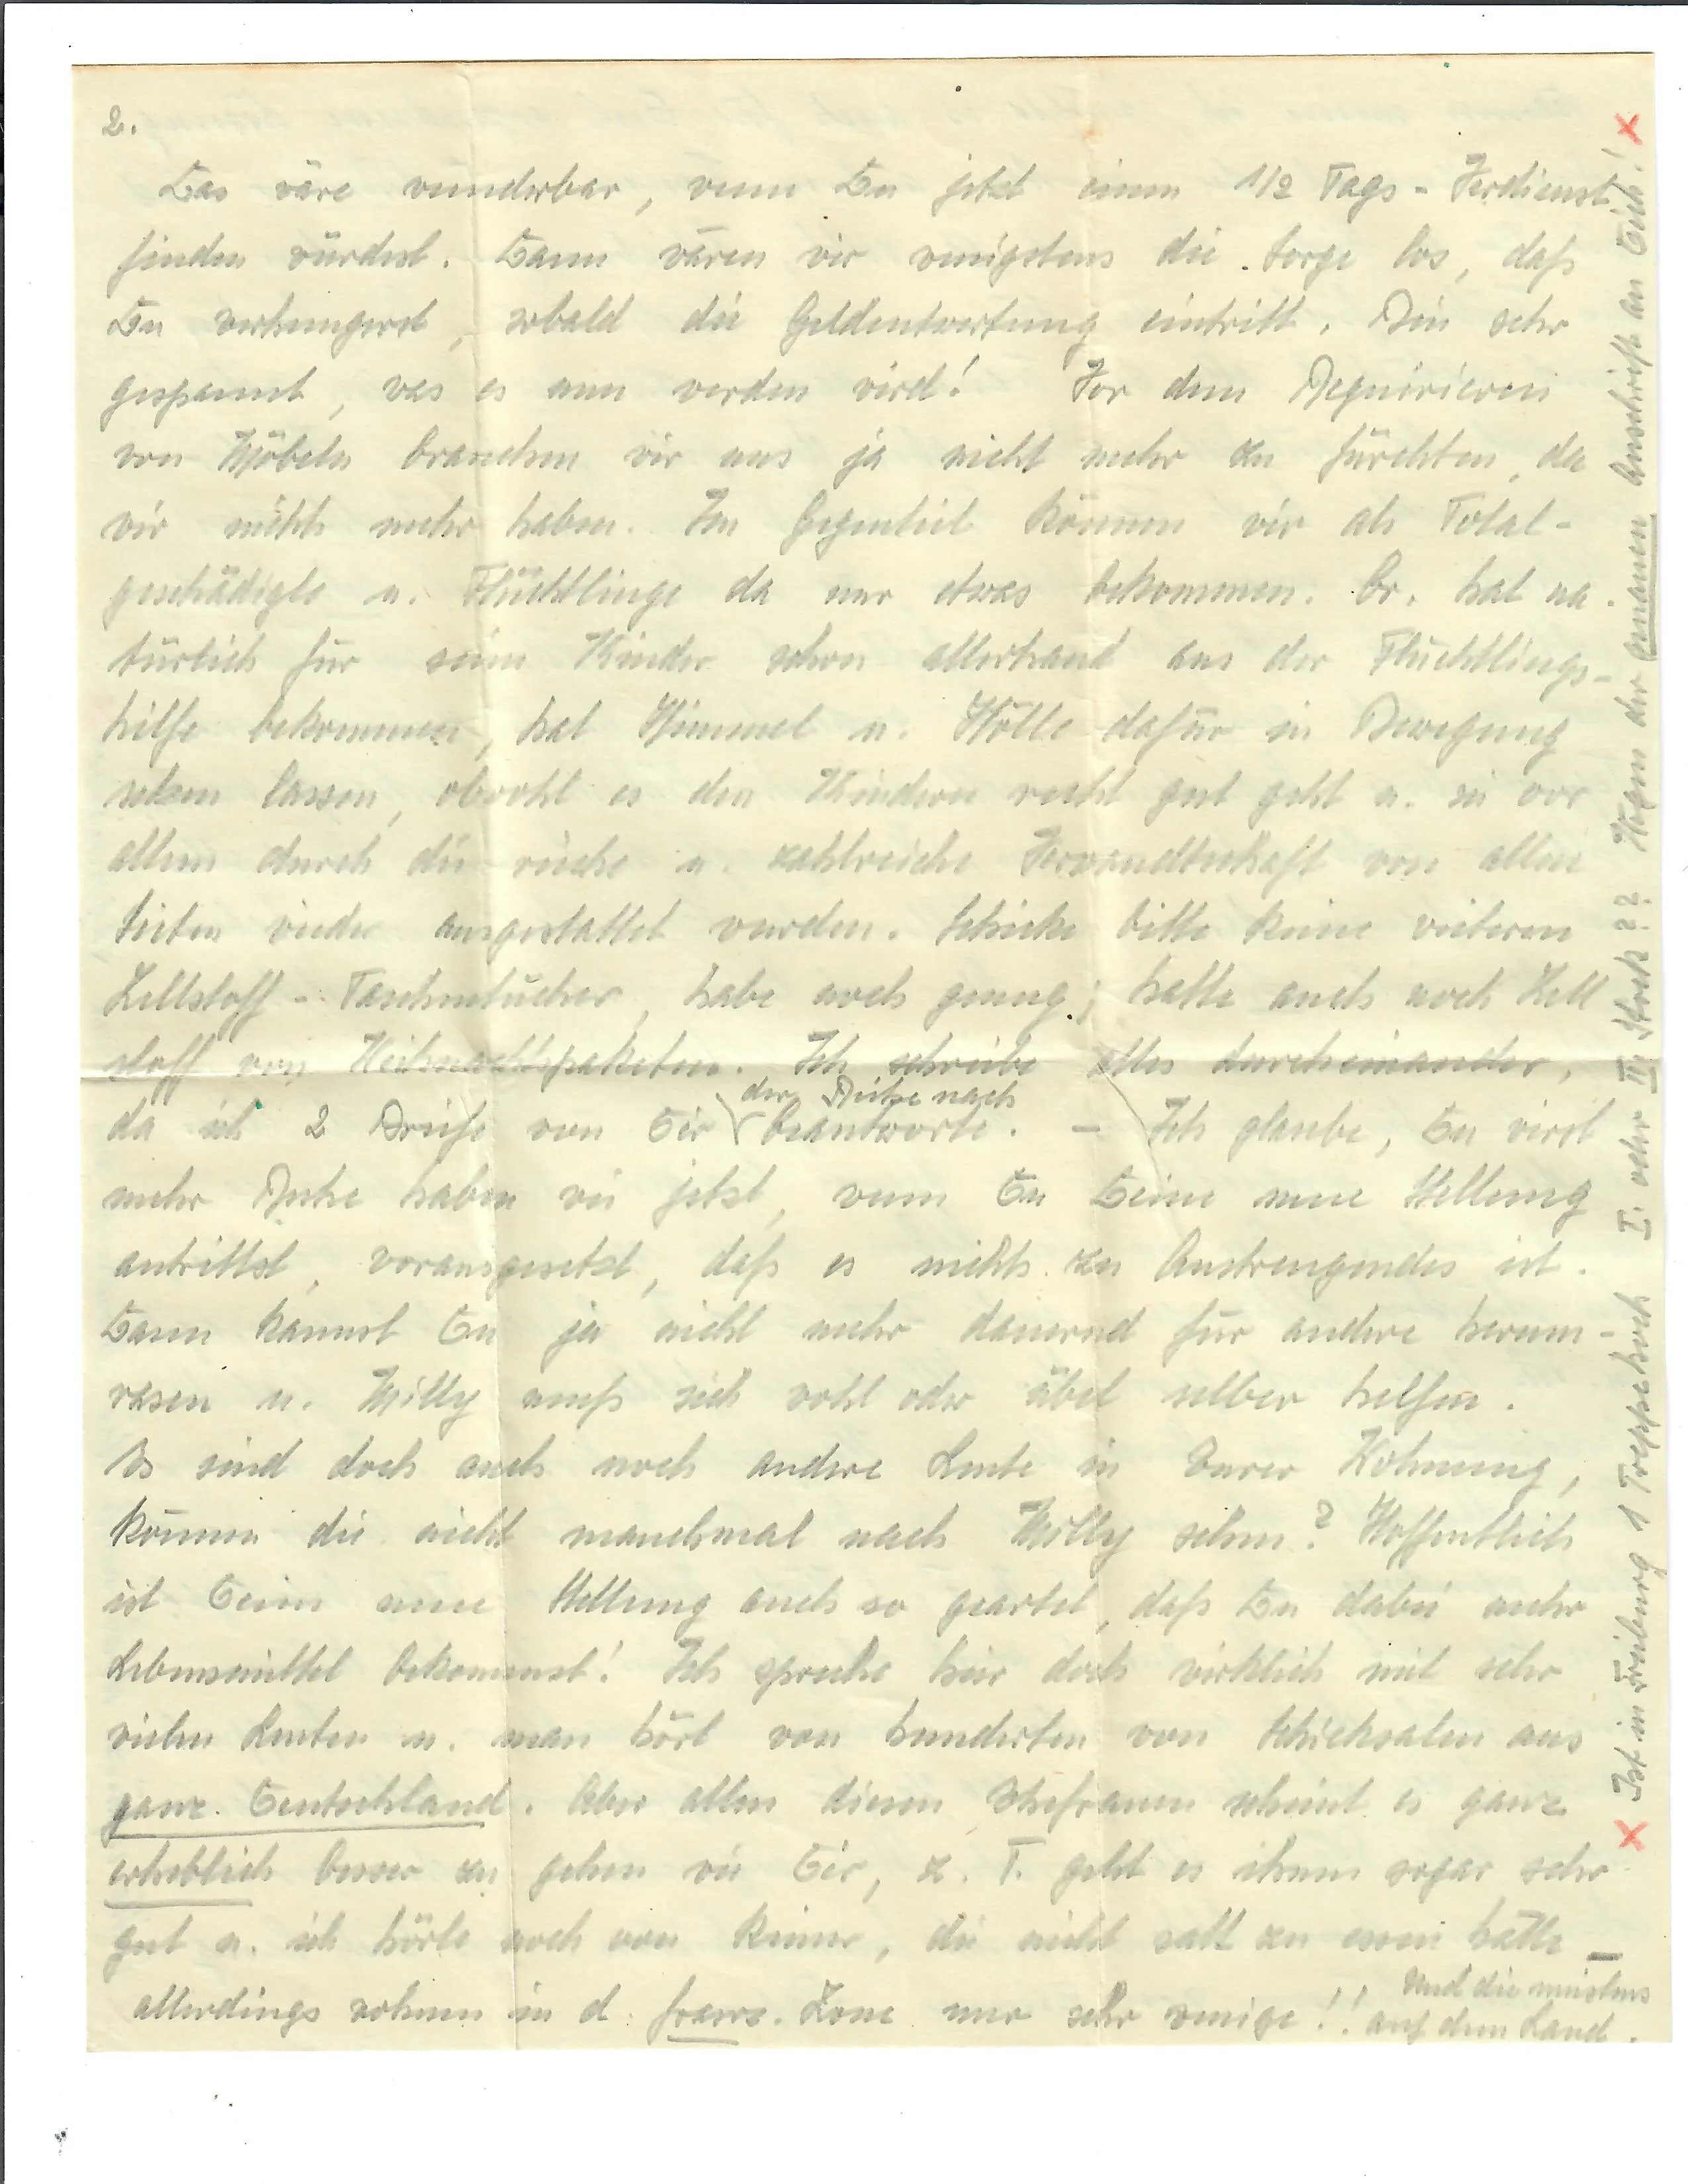 2.
Das wäre wunderbar, wenn Du jetzt einen 1/2 Tags-Verdienst
finden würdest. Dann wären wir wenigstens die Sorge los, daß
Du verhungerst, sobald die Geldentwertung eintritt. Bin sehr
gespannt, was es nun werden wird! Vor dem Requirieren
von Möbeln brauchen wir uns ja nicht mehr zu fürchten, da
wir nichts mehr haben. Im Gegenteil können wir als Total-
geschädigte u. Flüchtlinge da nur etwas bekommen. Br. hat na-
türlich für seine Kinder schon allerhand aus der Flüchtlings-
hilfe bekommen, hat Himmel u. Hölle dafür in Bewegung
setzen lassen, obwohl es den Kindern recht gut geht u. sie vor
allem durch die reiche u. zahlreiche Verwandtschaft von allen
Seiten wieder ausgestattet wurden. Schicke bitte keine weiteren
Zellstoff-Taschentücher, habe noch genug; hatte auch noch Zell
stoff von Weihnachtspaketen. Ich schreibe alles durcheinander,
da ich 2 Briefe von Dir der Reihe nach beantworte. – Ich glaube, Du wirst
mehr Ruhe haben wie jetzt, wenn Du Deine neue Stellung
antrittst, vorausgesetzt, daß es nichts zu Anstrengendes ist.
Dann kannst Du ja nicht mehr dauernd für andere herum-
rasen u. Milly muß sich wohl oder übel selber helfen.
Es sind doch auch noch andere Leute in Eurer Wohnung,
können die nicht manchmal nach Milly sehen? Hoffentlich
ist Deine neue Stellung auch so geartet, daß Du dabei mehr
Lebensmittel bekommst! Ich spreche hier doch wirklich mit sehr
vielen Leuten u. man hört von hunderten von Schicksalen aus
ganz Deutschland. Aber allen diesen Ehefrauen scheint es ganz
erheblich besser zu gehen wie Dir, z. T. geht es ihnen sogar sehr
gut u. ich hörte noch von keiner, die nicht satt zu essen hatte –
allerdings wohnen in d. franz. Zone nur sehr wenige!! und die meistens
auf dem Land.
x Ist in Freiburg 1 Treppe hoch I. oder III Stock?? Wegen der genauen Anschrift an Dich! x